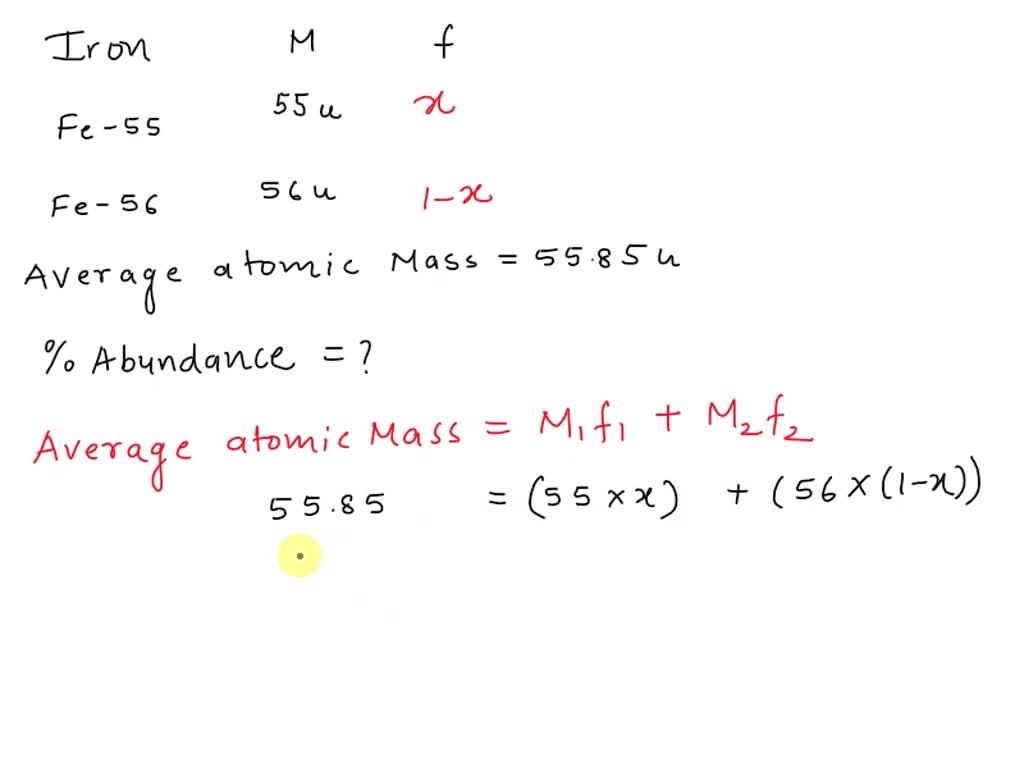 Iron M f
Fe-55 55u x
Fe-56 56u 1-x
Average atomic Mass = 55.85u
% Abundance = ?
Average atomic Mass = M₁f₁ + M₂f₂
55.85 = (55 × x) + (56 × (1-x))